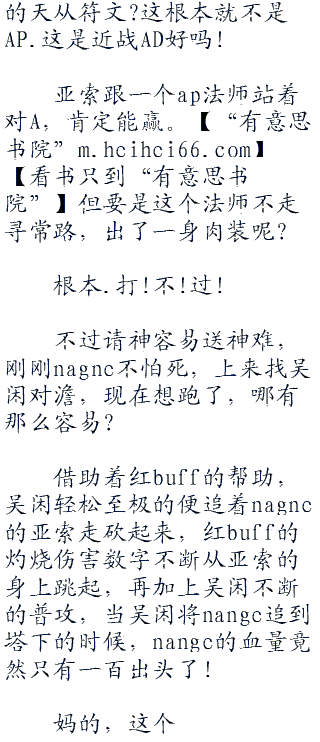 的天从符文?这根本就不是
AP.这是近战AD好吗!
亚索跟一个ap法师站着
对A，肯定能赢。【“有意思
书院”m.hcihci66.com】
【看书只到“有意思书
院”】但要是这个法师不走
寻常路，出了一身肉装呢?
根本.打!不!过!
不过请神容易送神难，
刚刚nagnc不怕死，上来找吴
闲对澹，现在想跑了，哪有
那么容易?
借助着红buff的帮助，
吴闲轻松至极的便追着nagnc
的亚索走砍起来，红buff的
灼烧伤害数字不断从亚索的
身上跳起，再加上吴闲不断
的普攻，当吴闲将nangc追到
塔下的时候，nangc的血量竟
然只有一百出头了!
妈的，这个